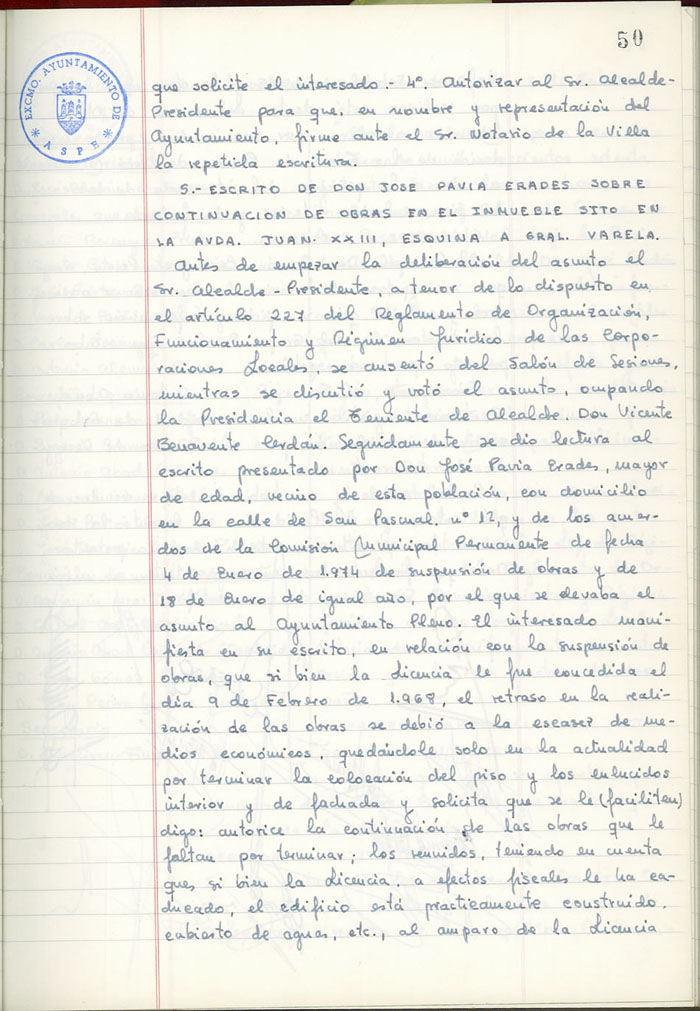 50
EXCMO. AYUNTAMIENTO DE
* ASPE *
que solicite el interesado.- 4º. Autorizar al Sr. Alcalde-
Presidente para que, en nombre y representación del
Ayuntamiento, firme ante el Sr. Notario de la Villa
la repetida escritura.
5.- ESCRITO DE DON JOSE PAVIA ERADES SOBRE
CONTINUACION DE OBRAS EN EL INMUEBLE SITO EN
LA AVDA. JUAN. XXIII, ESQUINA A GRAL. VARELA.
Antes de empezar la deliberación del asunto el
Sr. Alcalde-Presidente, a tenor de lo dispuesto en
el artículo 227 del Reglamento de Organización,
Funcionamiento y Régimen Jurídico de las Corpo-
raciones Locales, se ausentó del Salón de Sesiones,
mientras se discutió y votó el asunto, ocupando
la Presidencia el Teniente de Alcalde. Don Vicente
Benavente Cerdán. Seguidamente se dio lectura al
escrito presentado por Don José Pavia Erades, mayor
de edad, vecino de esta población, con domicilio
en la calle de San Pascual, nº 12, y de los acuer-
dos de la Comisión Municipal Permanente de fecha
4 de Enero de 1.974 de suspensión de obras y de
18 de Enero de igual año, por el que se elevaba el
asunto al Ayuntamiento Pleno. El interesado mani-
fiesta en su escrito, en relación con la suspensión de
obras, que si bien la Licencia le fue concedida el
día 9 de Febrero de 1.968, el retraso en la reali-
zación de las obras se debió a la escasez de me-
dios económicos, quedándole solo en la actualidad
por terminar la colocación del piso y los enlucidos
interior y de fachada y solicita que se le (faciliten)
digo: autorice la continuación de las obras que le
faltan por terminar; los reunidos, teniendo en cuenta
ques si bien la Licencia, a efectos fiscales le ha ca-
ducado, el edificio está practicamente construido,
cabierto de aguas, etc., al amparo de la Licencia